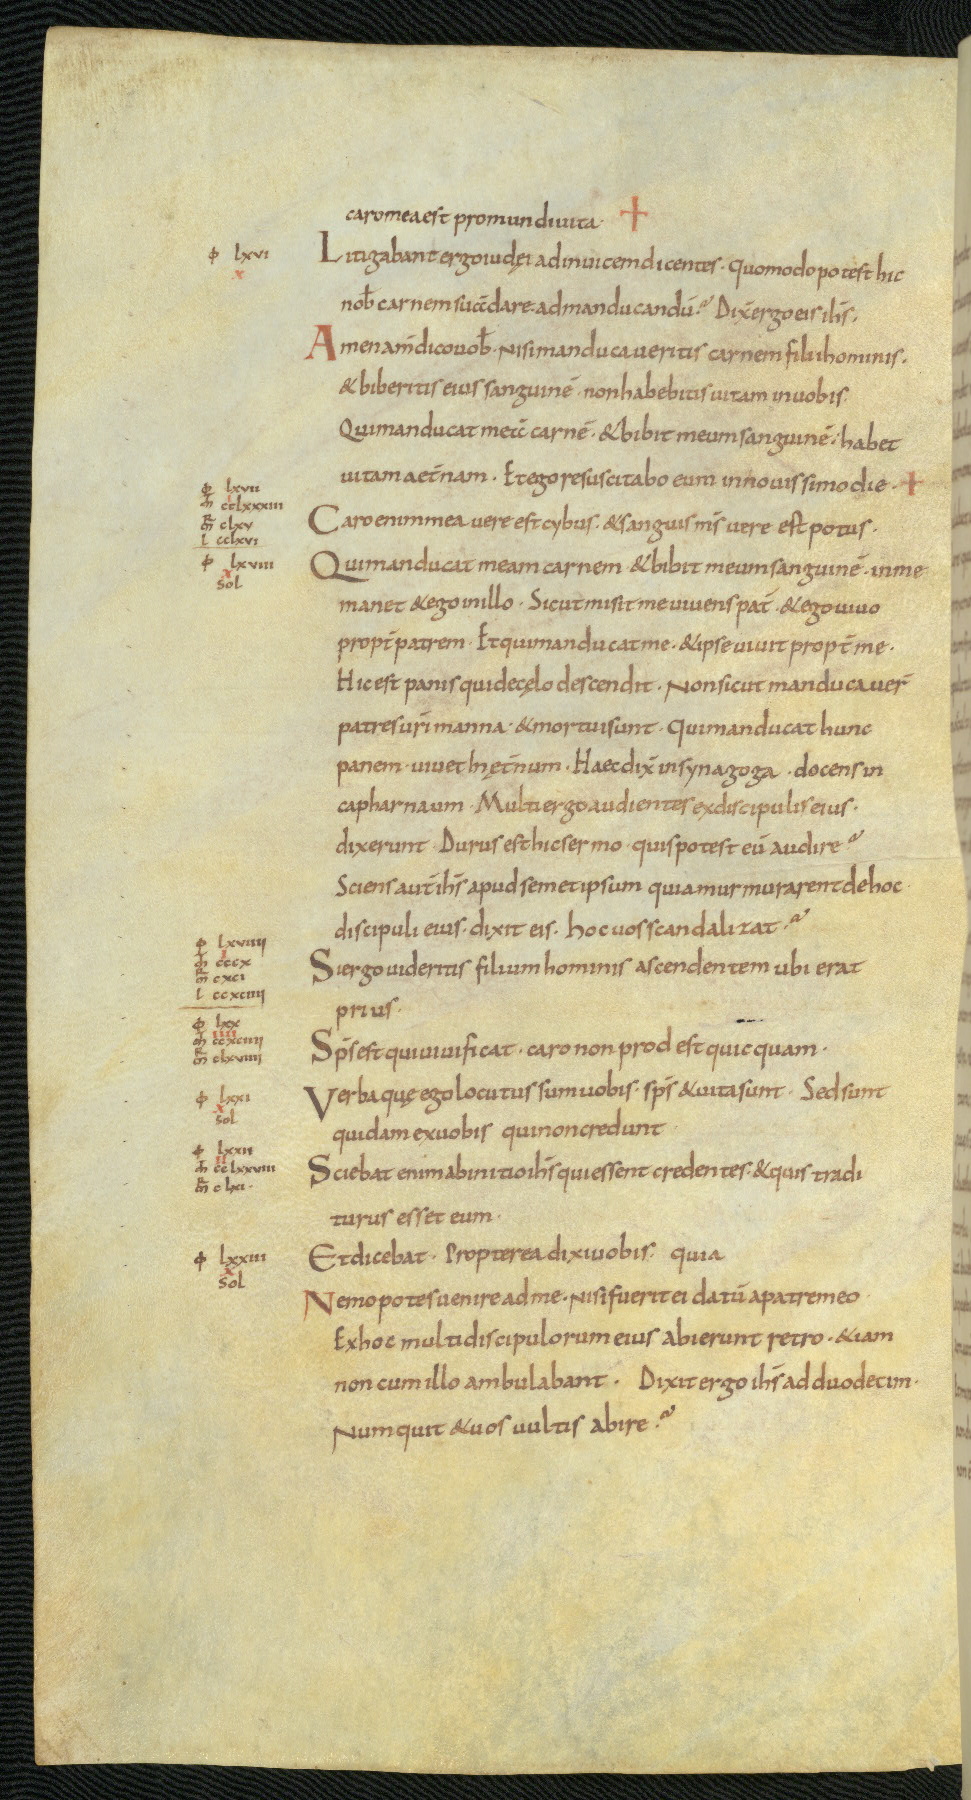 caro mea est pro mundi uita · +
φ lxvi Litigabant ergo iudęi adinuicem dicentes · Quomodo potest hic
x
nob̄ carnem suā dare ad manducandū · Dix̄ ergo eis ih̄s ·
Amen am̄ dico uob̄ · Nisi manducaueritis carnem filii hominis ·
& biberitis eius sanguinē · non habebitis uitam in uobis ·
Qui manducat meā carnē · & bibit meum sanguinē · habet
uitam aet̄nam · Et ego resuscitabo eum in nouissimo die · +
φ lxvii
m̄ cclxxxiiii
m̄ clxv Caro enim mea uere est cybus · & sanguis m̄s uere est potus ·
l cclxvi
φ lxviii Qui manducat meam carnem & bibit meum sanguinē · in me
x
sol
manet & ego in illo · Sicut misit me uiuens pat̄ · & ego uiuo
propt̄ patrem · Et qui manducat me · & ipse uiuit propt̄ me ·
Hic est panis qui de cęlo descendit · Non sicut manducauer̄
patres ur̄i manna · & mortui sunt · Qui manducat hunc
panem · uiuet in ęt̄num · Haec dix̄ in synagoga · docens in
capharnaum · Multi ergo audientes ex discipulis eius ·
dixerunt · Durus est hic sermo · quis potest eū audire
Sciens aut̄ ih̄s apud semetipsum quia murmurarent de hoc
discipuli eius · dixit eis · hoc uos scandalizat ·
φ lxviiii
m̄ cccx
m̄ cxci
l ccxciiii
Si ergo uideritis filium hominis ascendentem ubi erat
prius ·
φ lxx
iiii
m̄ ccxciiii
m̄ clxviiii
Sp̄s est qui uiuificat · caro non prodest quicquam ·
φ lxxi Verba quę ego locutus sum uobis · sp̄s & uita sunt · Sed sunt
x
sol
quidam ex uobis qui non credunt ·
φ lxxii
m̄ cclxxviii
m̄ clxi ·
Sciebat enim ab initio ih̄s qui essent credentes · & quis tradi
turus esset eum ·
φ lxxiii Et dicebat · Propterea dixi uobis · quia
x
sol
Nemo potes uenire ad me · Nisi fuerit ei datū a patre meo ·
Ex hoc multi discipulorum eius abierunt retro · & iam
non cum illo ambulabant · Dixit ergo ih̄s ad duodecim ·
Numquit & uos uultis abire ·